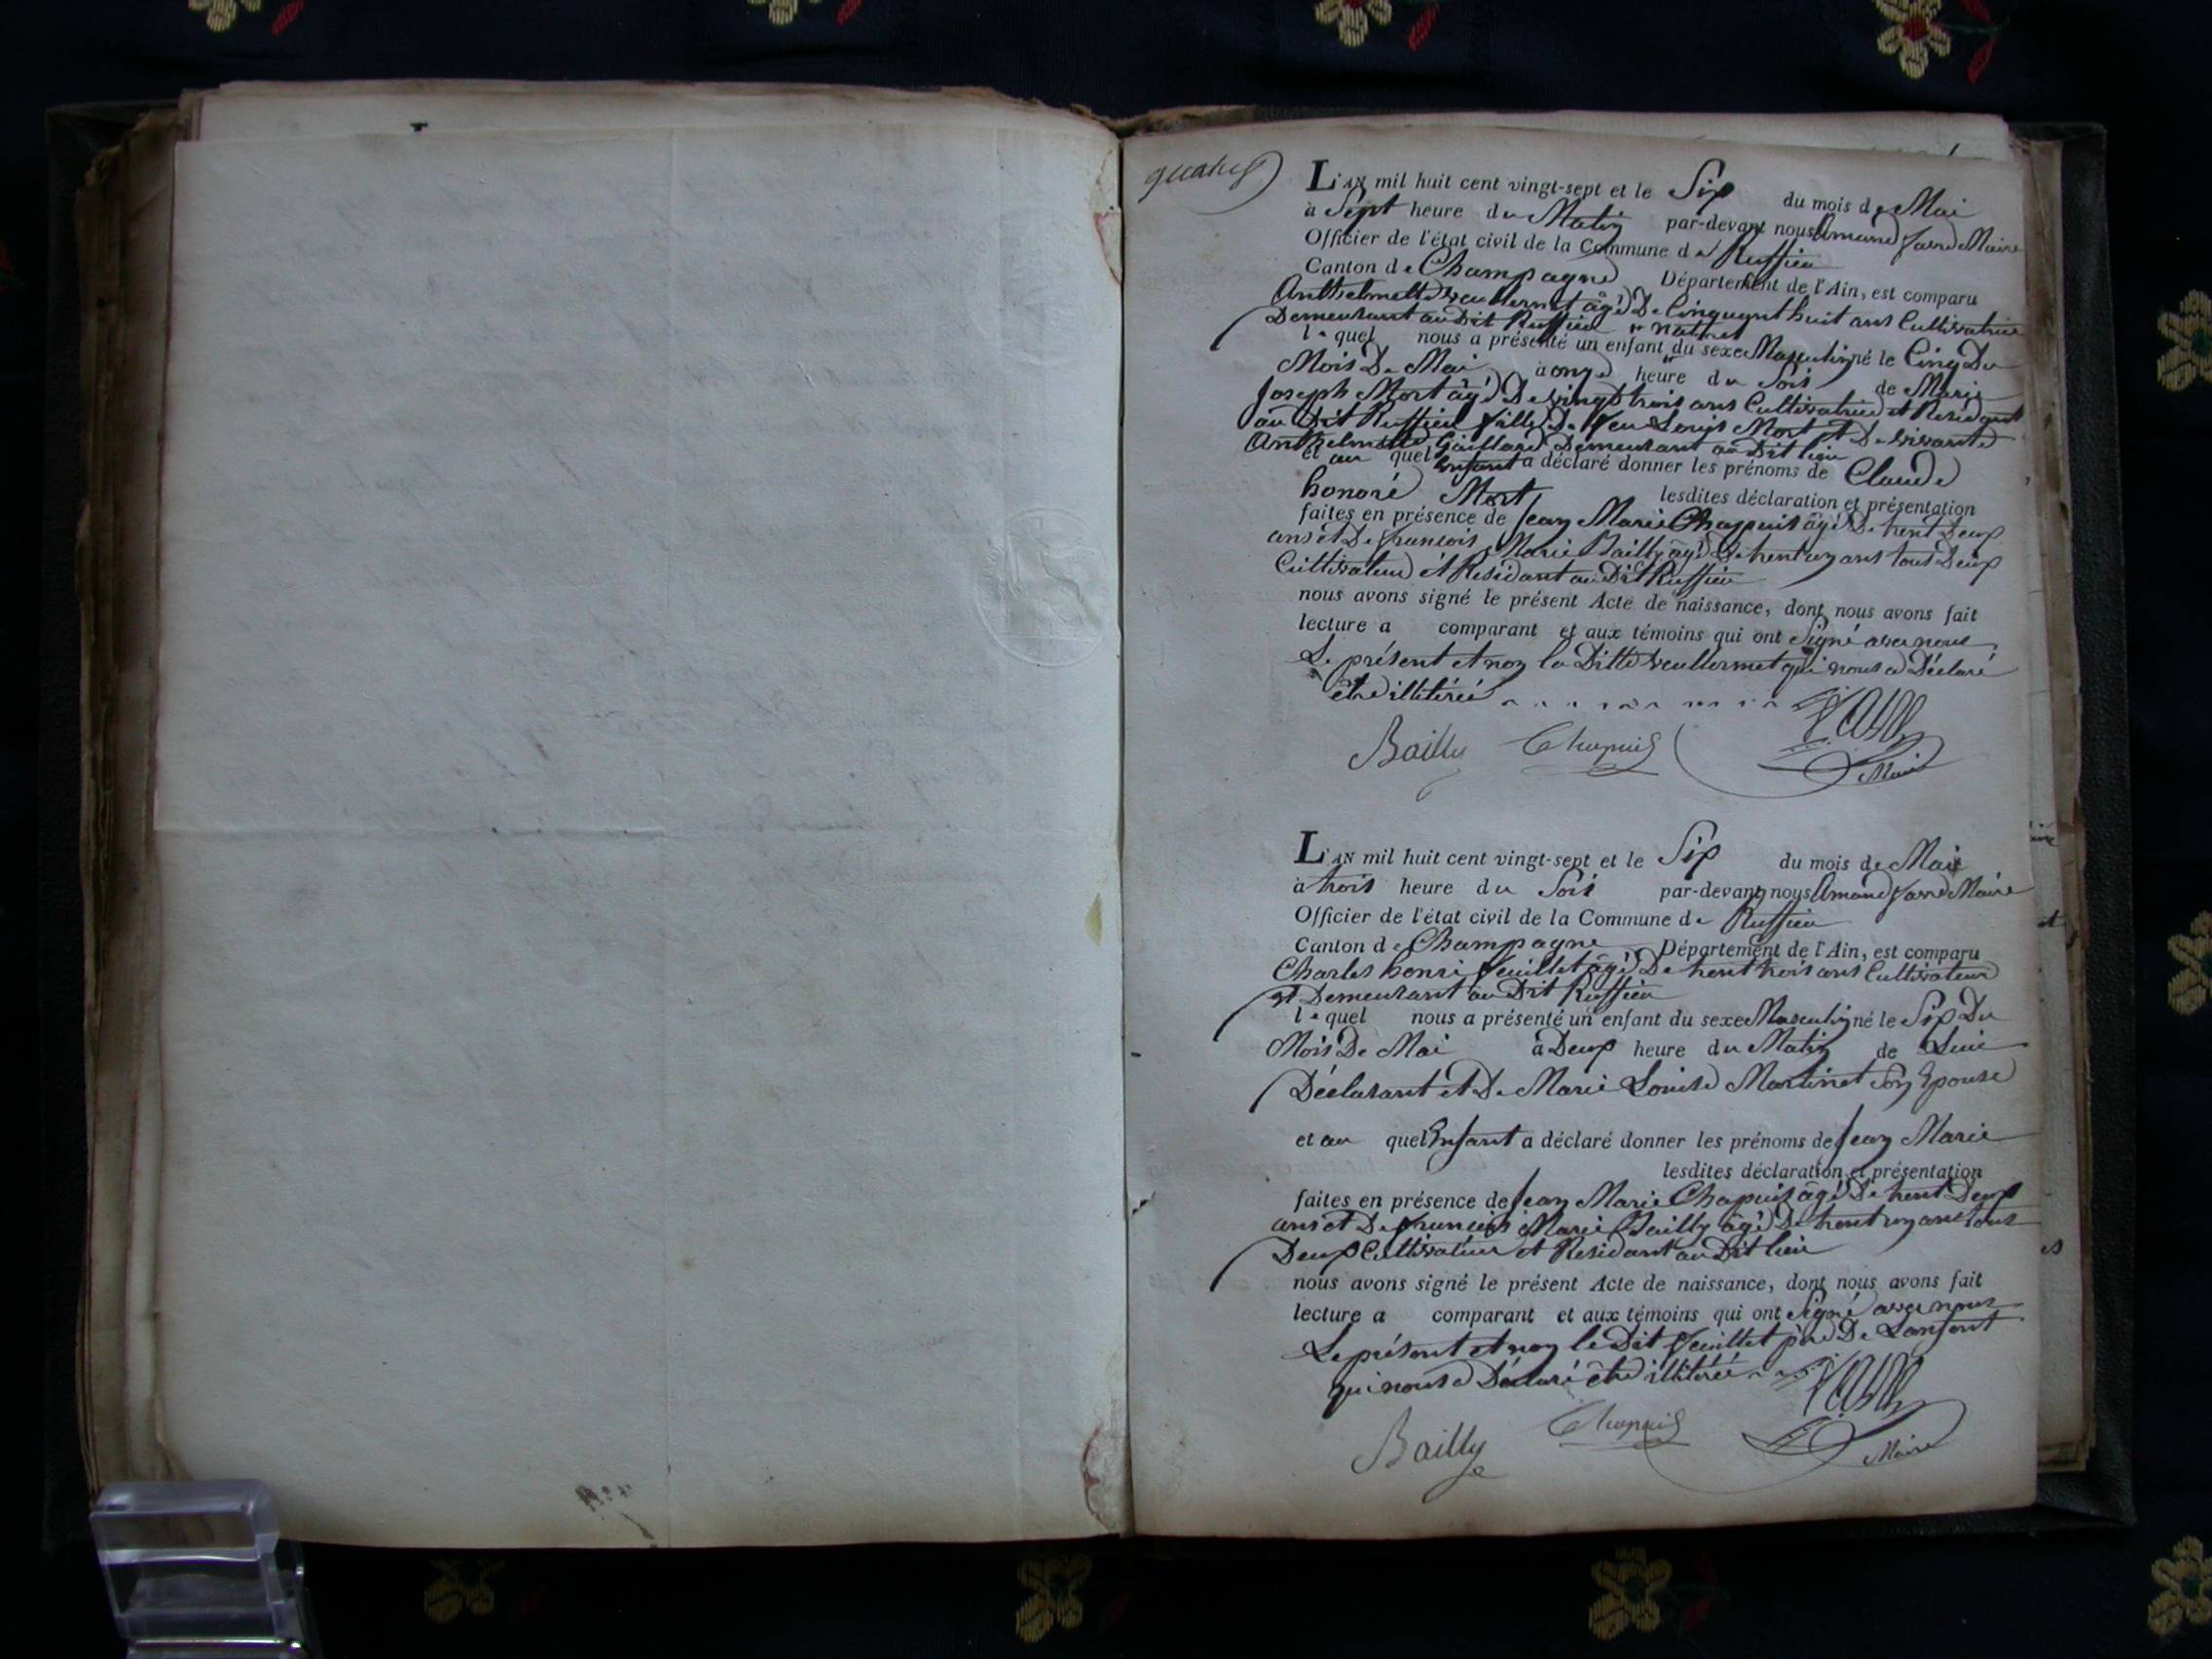 quatre
L'AN mil huit cent vingt-sept et le Six du mois de Mai
à Sept heure du Matin par-devant nous Amand favre Maire
Officier de l'état civil de la Commune de Ruffieu
Canton de Champagne Département de l'Ain, est comparu
Anthelmette vuillermet âgé De Cinquant huit ans Cultivatrice
Demeurant au Dit Ruffieu
naturel
le quel nous a présenté un enfant du sexe Masculin né le Cinq Du
Mois De Mai à onze heure du Soir de Marie
Joseph Mort âgé De vingt trois ans Cultivatrice et Residant
au Dit Ruffieu fille De feu Louis Mort et De vivante
Anthelmette Gaillard Demeurant au Dit lieu
et au quel Enfant a déclaré donner les prénoms de Claude
honoré Mort lesdites déclaration et présentation
faites en présence de Jean Marie Chapuis âgé De trent Deux
ans et De francois Marie Bailly âgé De trent un ans tous Deux
Cultivateur et Residant au Dit Ruffieu
nous avons signé le présent Acte de naissance, dont nous avons fait
lecture a comparant et aux témoins qui ont Signé avec nous
Le présent et non la Ditte vuillermet qui nous a Déclaré
être illitérée
Bailly Chapuis favre Maire
L'AN mil huit cent vingt-sept et le Six du mois de Mai
à trois heure du Soir par-devant nous Amand favre Maire
Officier de l'état civil de la Commune de Ruffieu
Canton de Champagne Département de l'Ain, est comparu
Charles henri feuillet âgé De trent trois ans Cultivateur
et Demeurant au Dit Ruffieu
le quel nous a présenté un enfant du sexe Masculin né le Six Du
Mois De Mai à Deux heure du Matin de Lui
Déclarant et De Marie Louise Martinet Son Epouse
et au quel Enfant a déclaré donner les prénoms de Jean Marie
lesdites déclaration et présentation
faites en présence de Jean Marie Chapuis âgé De trent Deux
ans et De francois Marie Bailly âgé De trent un ans tous
Deux Cultivateur et Residant au Dit lieu
nous avons signé le présent Acte de naissance, dont nous avons fait
lecture a comparant et aux témoins qui ont Signé avec nous
Le présent et non le Dit feuillet père De Lanfant
qui nous a Déclaré être illitérée
Bailly Chapuis favre Maire